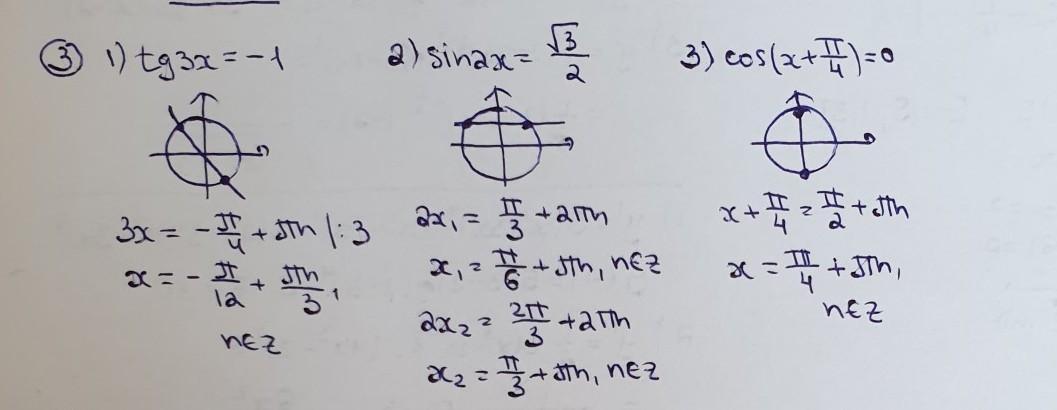 ③ 1) tg3x = -1
3x = -π/4 + πn |:3
x = -π/12 + πn/3,
n∈z
2) sin2x = √3/2
2x₁ = π/3 + 2πn
x₁ = π/6 + πn, n∈z
2x₂ = 2π/3 + 2πn
x₂ = π/3 + πn, n∈z
3) cos(x+π/4)=0
x + π/4 = π/2 + πn
x = π/4 + πn,
n∈z